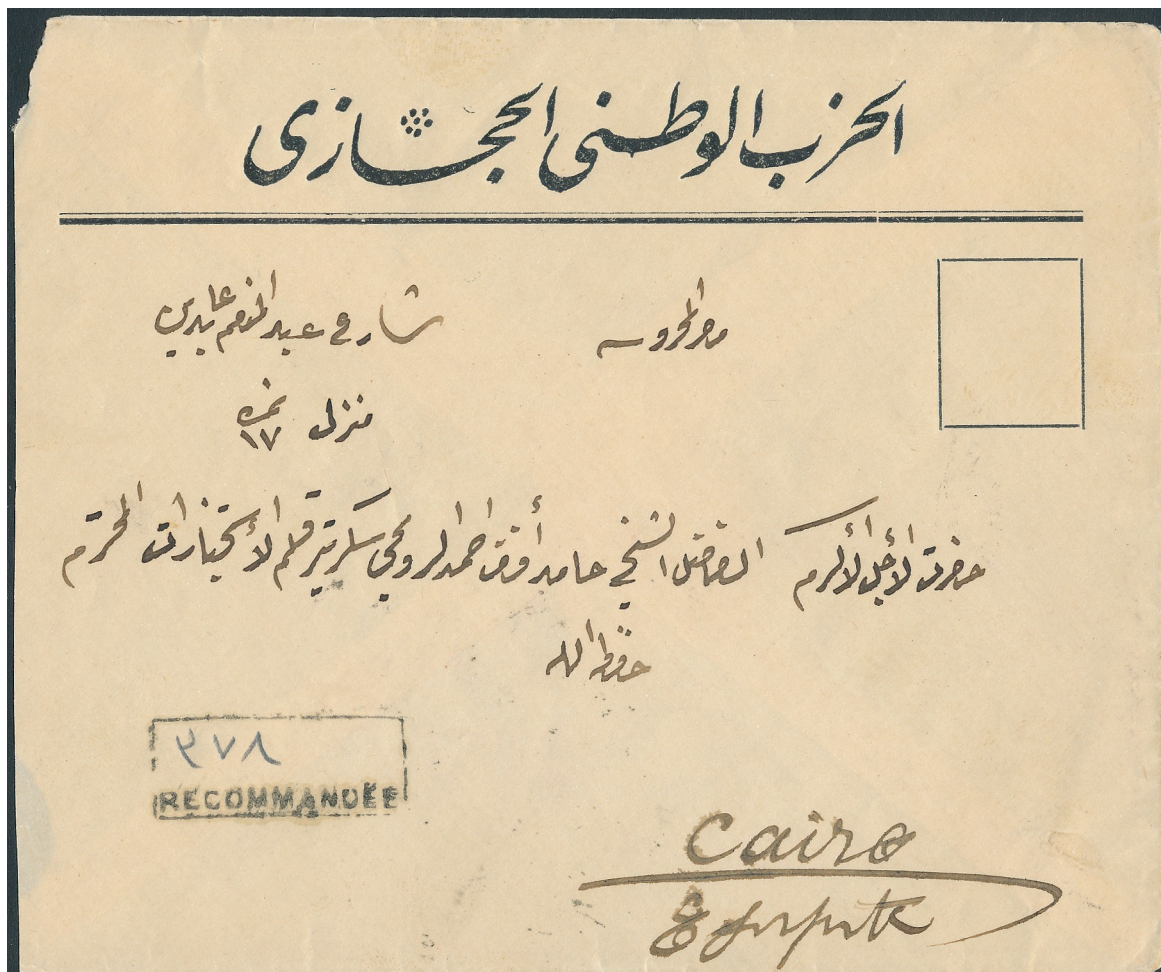 الحزب الوطني الحجازي
مصر المحروسه شارع عبد المنعم عابدين
منزل نمرة ١٧
حضرت الأجل الأكرم الفاضل الشيخ حامد أفندي احمد سكرتير قلم الأستخبارات المحترم
حفظه الله
٣٧٨
RECOMMANDÉE
Cairo
Egypt